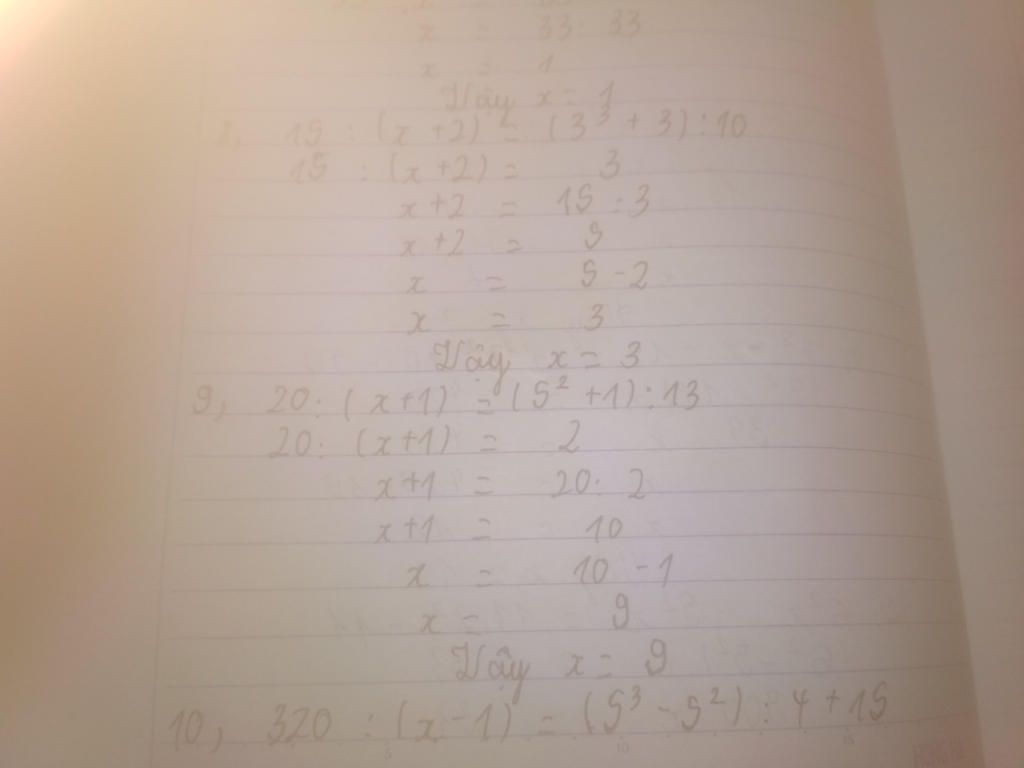 x = 33 : 33
x = 1
Vậy x = 1
8, 15 : (x + 2) = (3³ + 3) : 10
15 : (x + 2) = 3
x + 2 = 15 : 3
x + 2 = 5
x = 5 - 2
x = 3
Vậy x = 3
9, 20 : (x + 1) = (5² + 1) : 13
20 : (x + 1) = 2
x + 1 = 20 : 2
x + 1 = 10
x = 10 - 1
x = 9
Vậy x = 9
10, 320 : (x - 1) = (5³ - 5²) : 4 + 15